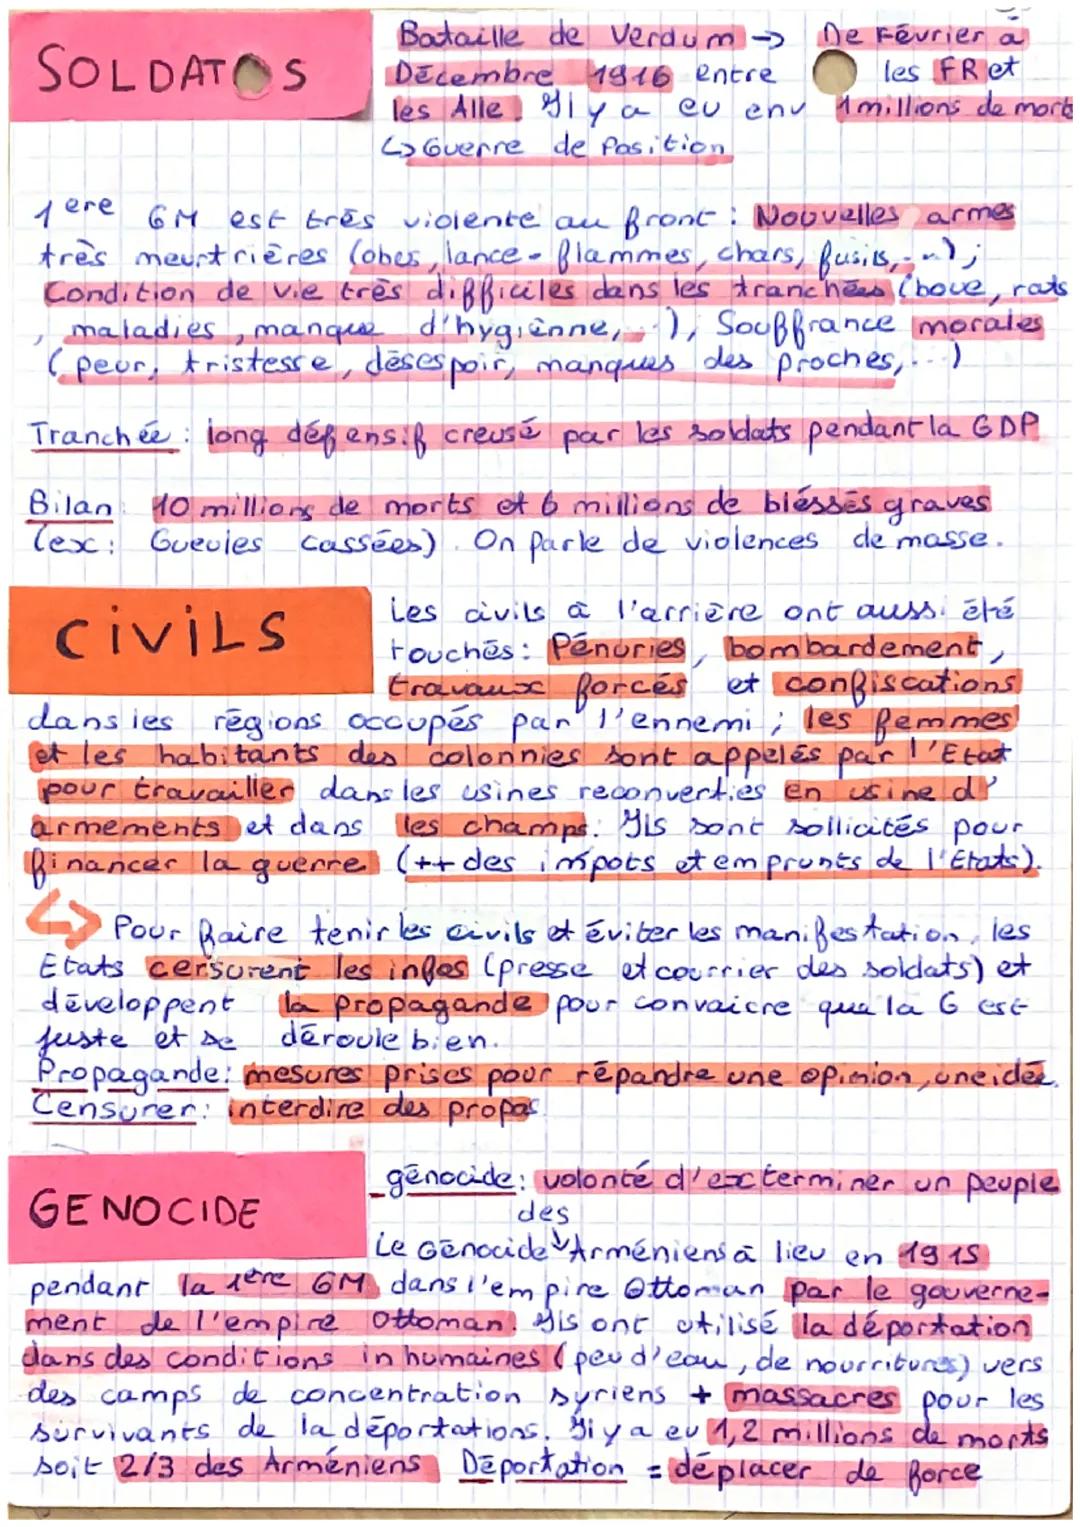 SOLDATOS
Bataille de Verdum → De Février à
Décembre 1916 entre les FR et
les Alle. Il y a eu env 1 millions de mort
↳ Guerre de Position
1ere GM est très violente au front : Nouvelles armes
très meurtrières (obes, lance-flammes, chars, fusils,...);
Condition de vie très difficiles dans les tranchées (boue, rats
, maladies, manque d'hygiènne,...), Souffrance morales
(peur, tristesse, désespoir, manques des proches,...)
Tranchée : long défensif creusé par les soldats pendant la GDP
Bilan : 10 millions de morts et 6 millions de bléssés graves
(ex: Gueules cassées). On parle de violences de masse.
CiViLS
Les civils à l'arrière ont aussi été
touchés : Pénuries, bombardement,
travaux forcés et confiscations
dans les régions occupés par l'ennemi ; les femmes
et les habitants des colonnies sont appelés par l'Etat
pour travailler dans les usines reconverties en usine d'
armements et dans les champs. Ils sont sollicités pour
financer la guerre (++ des impots et emprunts de l'Etats).
↳ Pour faire tenir les civils et éviter les manifestation, les
Etats censurent les infos (presse et courrier des soldats) et
développent la propagande pour convaicre que la G est
juste et se déroule bien.
Propagande : mesures prises pour répandre une opinion, une idée.
Censurer : interdire des propos
GENOCIDE
génocide : volonté d'exterminer un peuple
des
Le Génocide ↓ Arméniens à lieu en 1915
pendant la 1ère GM dans l'empire Ottoman par le gouverne-
ment de l'empire Ottoman. Ils ont utilisé la déportation
dans des conditions inhumaines (peu d'eau, de nourritures) vers
des camps de concentration syriens + massacres pour les
survivants de la déportations. Il y a eu 1,2 millions de morts
soit 2/3 des Arméniens Déportation = déplacer de force